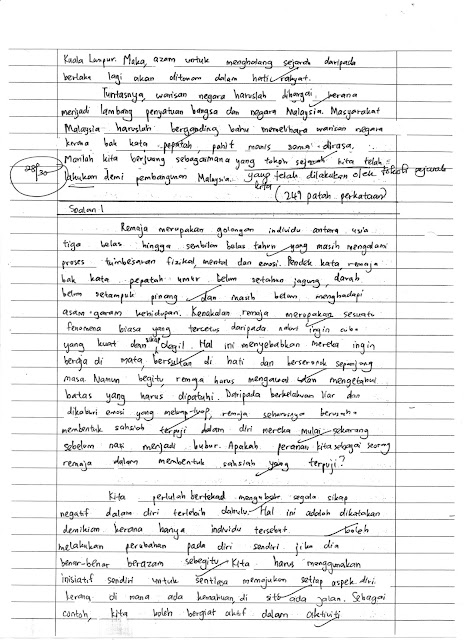 Kuala Lumpur. Maka, azam untuk menghalang sejarah daripada
berlaku lagi akan ditanam dalam hati rakyat.
Tuntasnya, warisan negara haruslah dihargai kerana
menjadi lambang penyatuan bangsa dan negara Malaysia. Masyarakat
Malaysia haruslah berganding bahu memelihara warisan negara
kerana bak kata pepatah, pahit manis sama dirasa.
Marilah kita berjuang sebagaimana yang tokoh sejarah kita telah
lakukan demi pembangunan Malaysia. yang telah dilakukan oleh tokoh sejarah
kita
(249 patah perkataan)
28/30
Soalan 1
Remaja merupakan golongan individu antara usia
tiga belas hingga sembilan belas tahun yang masih mengalami
proses tumbesaran fizikal, mental dan emosi. Pendek kata remaja
bak kata pepatah umur belum setahun jagung, darah
belum setampuk pinang dan masih belum menghadapi
asam garam kehidupan. Kenakalan remaja merupakan sesuatu
fenomena biasa yang tercetus daripada naluri ingin cuba
yang kuat dan sikap degil. Hal ini menyebabkan mereka ingin
beraja di mata, bersultan di hati dan berseronok sepanjang
masa. Namun begitu remaja harus mengawal dan mengetahui
batas yang harus dipatuhi. Daripada berkelakuan liar dan
dikaburi emosi yang meluap-luap, remaja seharusnya berusaha
membentuk sahsiah terpuji dalam diri mereka mulai sekarang
sebelum nasi menjadi bubur. Apakah peranan kita sebagai seorang
remaja dalam membentuk sahsiah yang terpuji?
Kita perlulah bertekad mengubah segala sikap
negatif dalam diri terlebih dahulu. Hal ini adalah dikatakan
demikian kerana hanya individu tersebut boleh
melakukan perubahan pada diri sendiri jika dia
benar-benar berazam sebegitu. Kita harus menggunakan
inisiatif sendiri untuk sentiasa memajukan setiap aspek diri
kerana di mana ada kemahuan di situ ada jalan. Sebagai
contoh, kita boleh bergiat aktif dalam aktiviti